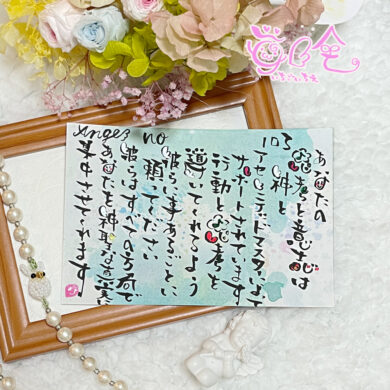 Angel no 103
あなたの
思考と意志は
神と
アセンデッドマスターによって
サポートされています
行動と思考を
導いてくれるよう
彼らに事あるごとに
頼ってください
彼らはすべての方面で
あなたを神聖な真実に
集中させてくれます